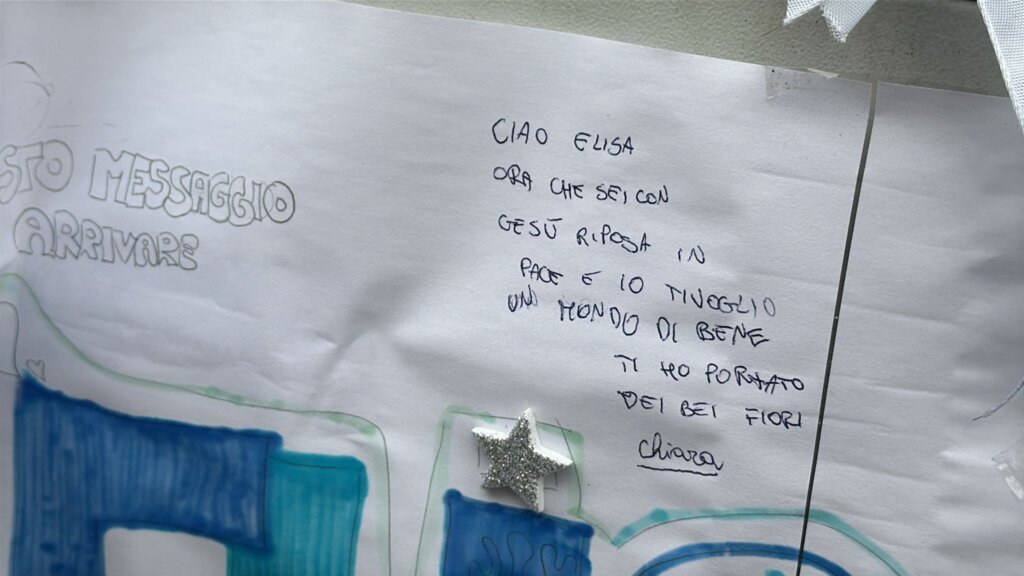 STO MESSAGGIO
ARRIVARE
CIAO ELISA
ORA CHE SEI CON
GESÙ RIPOSA IN
PACE E IO TI VOGLIO
UN MONDO DI BENE
TI HO PORTATO
DEI BEI FIORI
Chiara